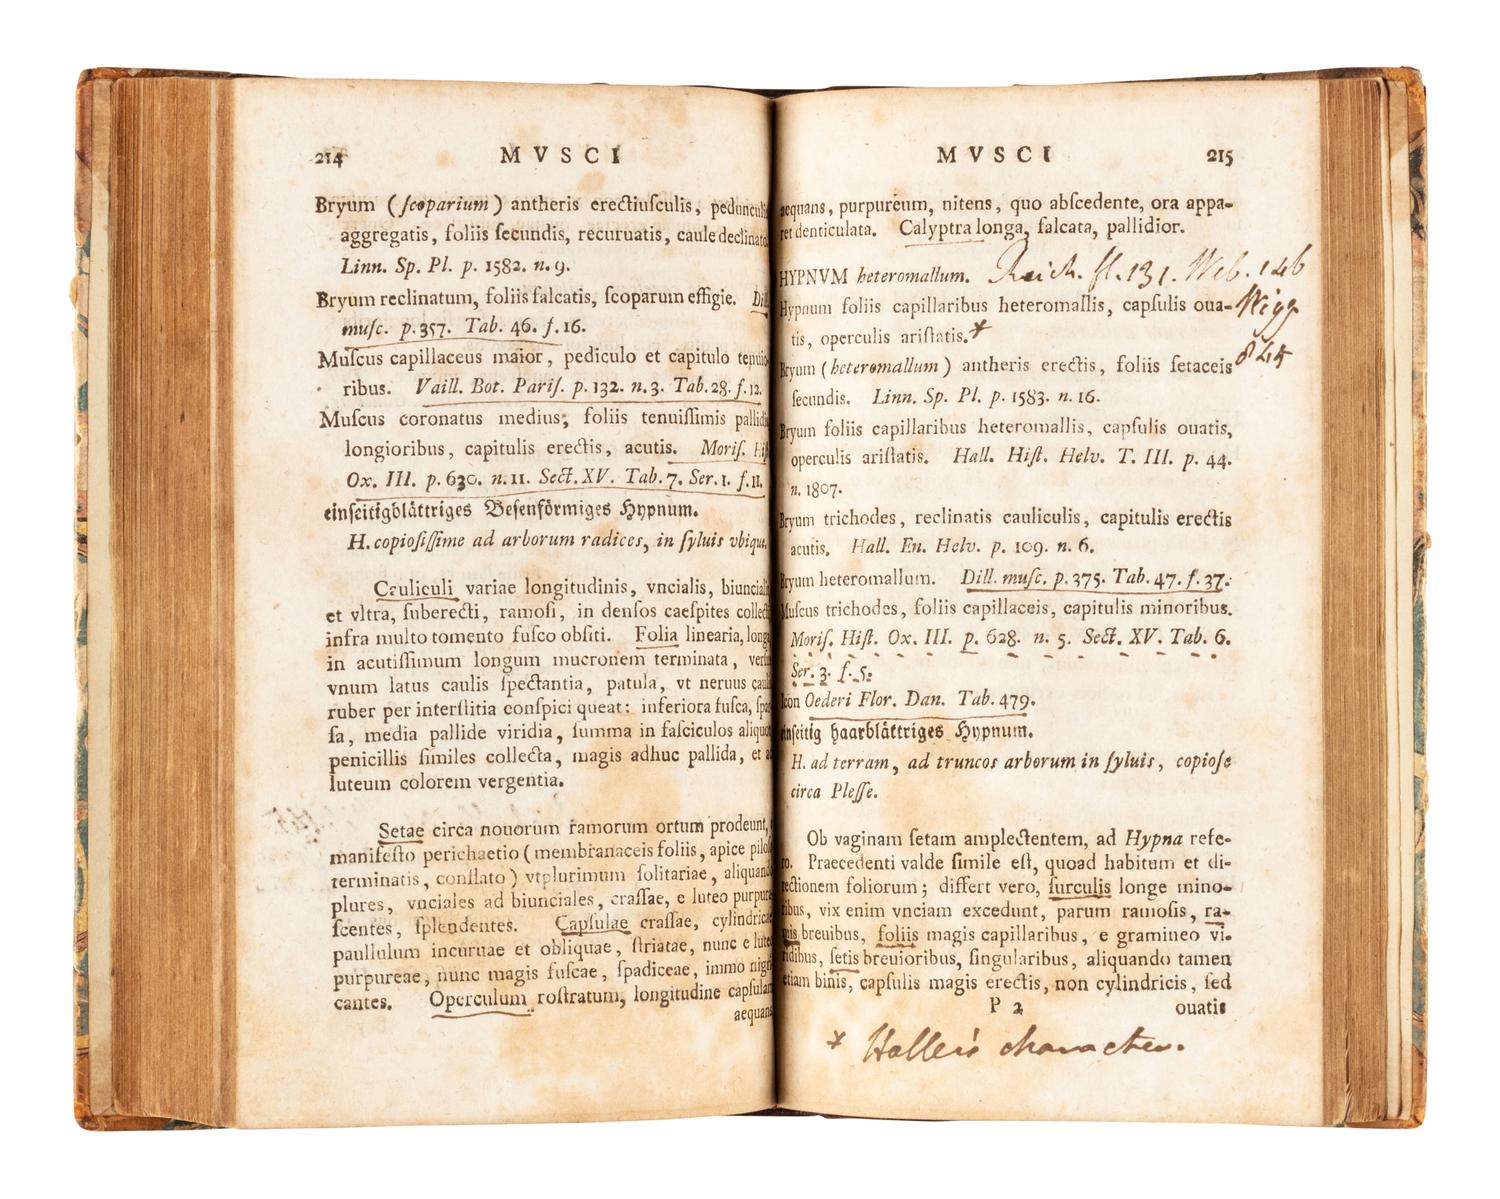 214 MVSCI
Bryum (ſcoparium) antheris erectiuſculis, pedunculis
aggregatis, foliis ſecundis, recuruatis, caule declinato.
Linn. Sp. Pl. p. 1582. n. 9.
Bryum reclinatum, foliis falcatis, ſcoparum effigie. Dill.
muſc. p. 357. Tab. 46. f. 16.
Muſcus capillaceus maior, pediculo et capitulo tenuio-
ribus. Vaill. Bot. Pariſ. p. 132. n. 3. Tab. 28. f. 12.
Muſcus coronatus medius, foliis tenuiſſimis pallidis
longioribus, capitulis erectis, acutis. Moriſ. Hiſt.
Ox. III. p. 630. n. 11. Sect. XV. Tab. 7. Ser. 1. f. 11.
einſeitigblättriges Beſenförmiges Hypnum.
H. copioſiſſime ad arborum radices, in ſyluis vbique.
Cauliculi variae longitudinis, vncialis, biuncialis
et vltra, ſuberecti, ramoſi, in denſos caeſpites collecti
infra multo tomento fuſco obſiti. Folia linearia, longa,
in acutiſſimum longum mucronem terminata, verſus
vnum latus caulis ſpectantia, patula, vt neruus caulis
ruber per interſtitia conſpici queat: inferiora fuſca, ſpar-
ſa, media pallide viridia, ſumma in faſciculos aliquot
penicillis ſimiles collecta, magis adhuc pallida, et ad
luteum colorem vergentia.
Setae circa nouorum ramorum ortum prodeunt, e
manifeſto perichaetio (membranaceis foliis, apice piloſo
terminatis, conflato) vtplurimum ſolitariae, aliquando
plures, vnciales ad biunciales, craſſae, e luteo purpura-
ſcentes, ſplendentes. Capſulae craſſae, cylindricae,
paullulum incuruae et obliquae, ſtriatae, nunc e luteo
purpureae, nunc magis fuſcae, ſpadiceae, immo nigri-
cantes. Operculum roſtratum, longitudine capſulam
aequans
MVSCI 215
aequans, purpureum, nitens, quo abſcedente, ora appa-
ret denticulata. Calyptra longa, falcata, pallidior.
HYPNVM heteromallum. Reich. fl. 131. Web. 146
Hypnum foliis capillaribus heteromallis, capſulis oua- Wigg
tis, operculis ariſtatis.*
Bryum (heteromallum) antheris erectis, foliis ſetaceis
ſecundis. Linn. Sp. Pl. p. 1583. n. 16.
Bryum foliis capillaribus heteromallis, capſulis ouatis,
operculis ariſtatis. Hall. Hiſt. Helv. T. III. p. 44.
n. 1807.
Bryum trichodes, reclinatis cauliculis, capitulis erectis
acutis. Hall. En. Helv. p. 109. n. 6.
Bryum heteromallum. Dill. muſc. p. 375. Tab. 47. f. 37.
Muſcus trichodes, foliis capillaceis, capitulis minoribus.
Moriſ. Hiſt. Ox. III. p. 628. n. 5. Sect. XV. Tab. 6.
Ser. 3. f. 5.
Icon Oederi Flor. Dan. Tab. 479.
einſeitig haarblättriges Hypnum.
H. ad terram, ad truncos arborum in ſyluis, copioſe
circa Pleſſe.
Ob vaginam ſetam amplectentem, ad Hypna refe-
ro. Praecedenti valde ſimile eſt, quoad habitum et di-
rectionem foliorum; differt vero, ſurculis longe mino-
ribus, vix enim vnciam excedunt, parum ramoſis, ra-
mis breuibus, foliis magis capillaribus, e gramineo vi-
ridibus, ſetis breuioribus, ſingularibus, aliquando tamen
etiam binis, capſulis magis erectis, non cylindricis, ſed
P 2 ouatis
* Haller's character.